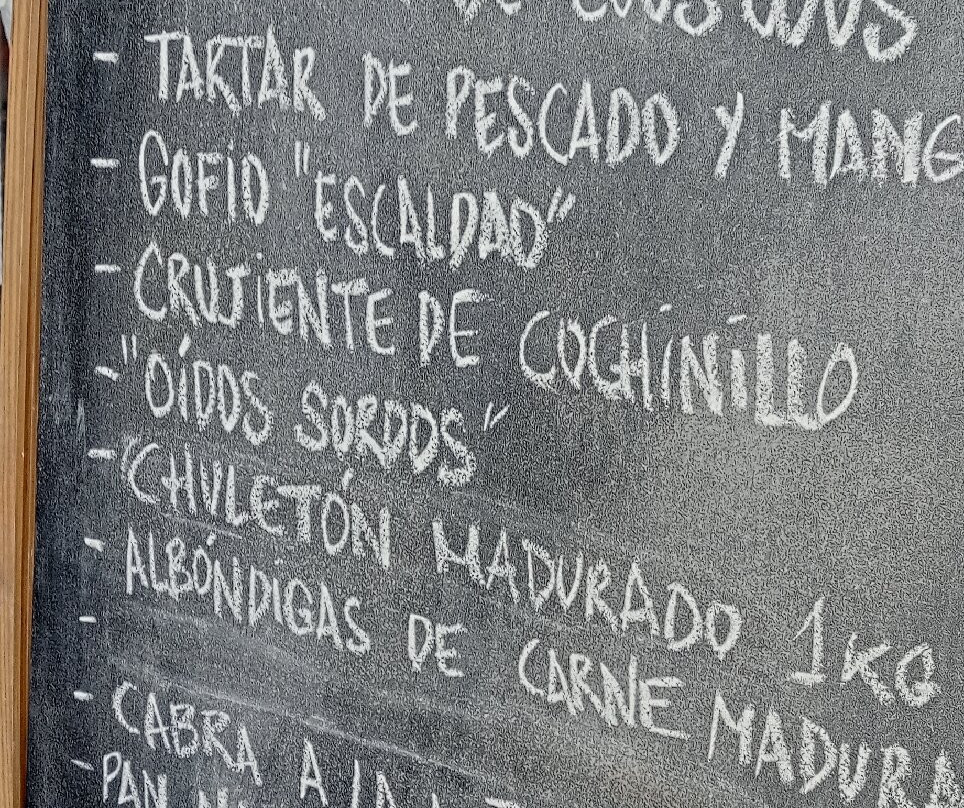 DE
- TARTAR DE PESCADO Y MANG
- GOFIO "ESCALDAD"
- CRUJIENTE DE COCHINILLO
- "OÍDOS SORDOS"
- "CHULETÓN MADURADO 1KG
- ALBÓNDIGAS DE CARNE MADURA
-
- CABRA A LA
- PAN